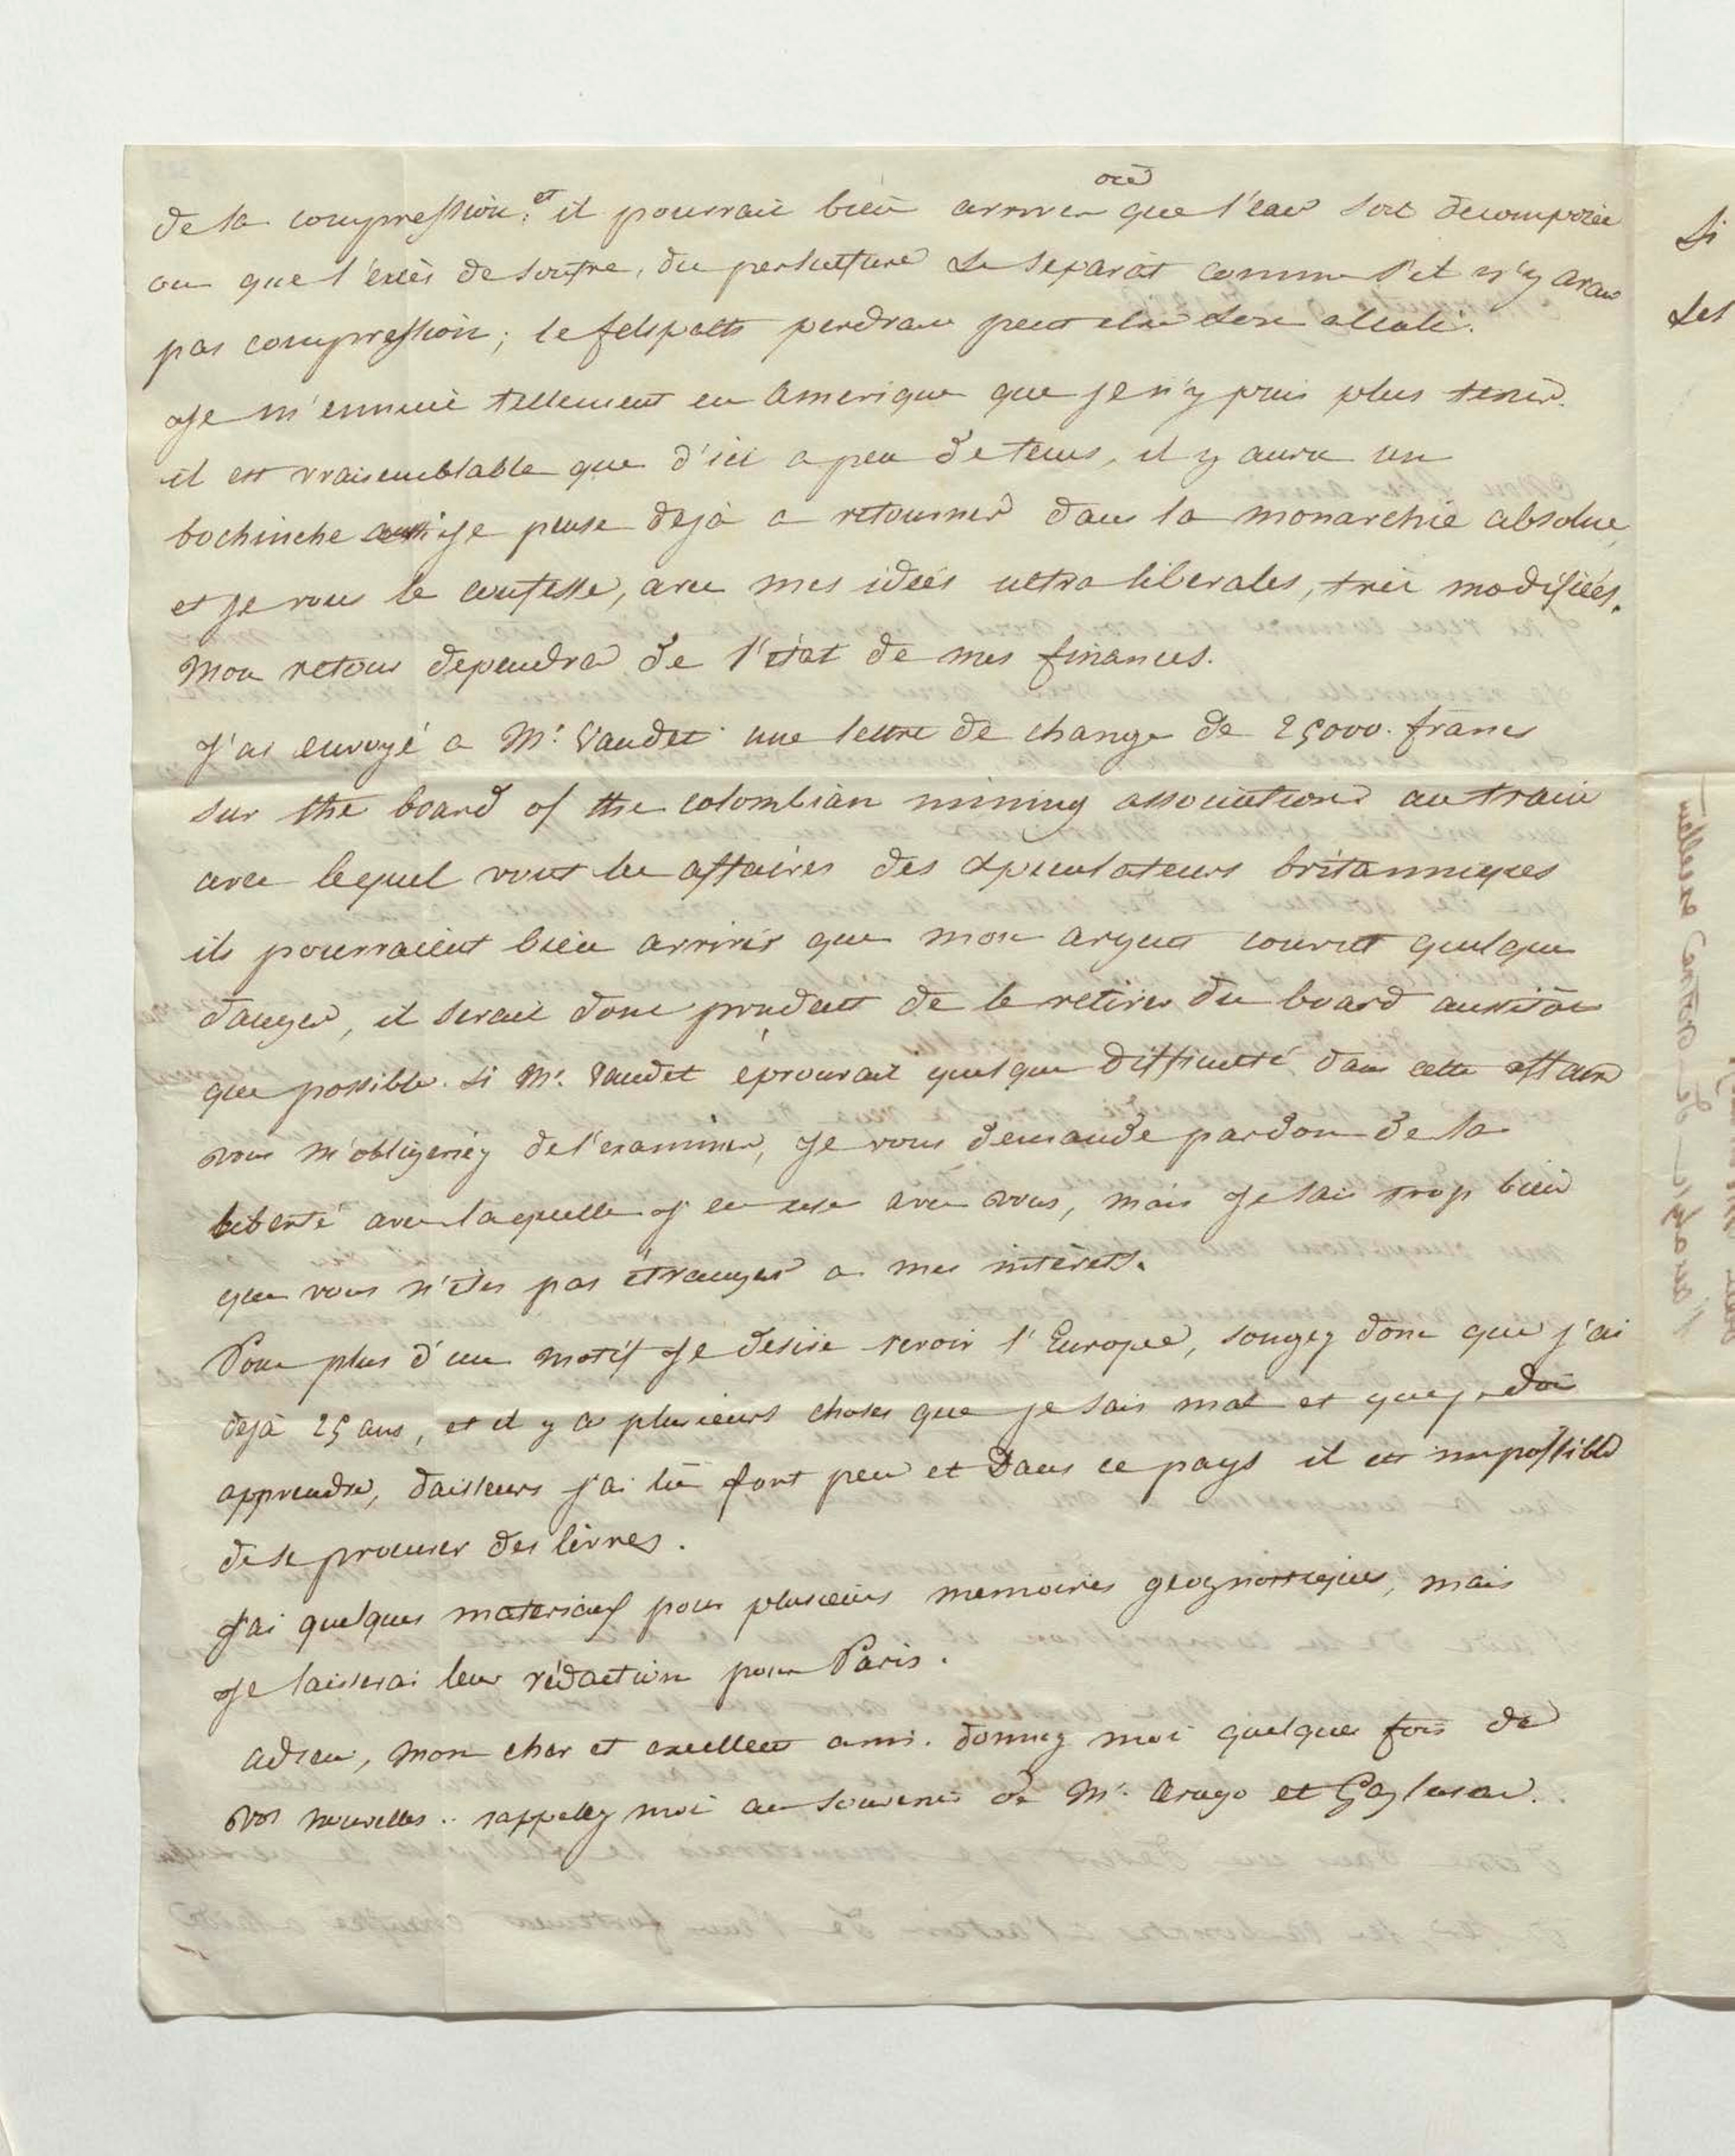 de la compression; et il pourrait bien arriver que l'eau soit decomposée
ou que l'excès de soufre, du persulfure se separât comme s'il n'y avait
pas compression; le felspath perdrait peut etre son alcali.
Je m'ennuie tellement en Amerique que je n'y puis plus tenir.
il est vraisemblable que d'ici a peu de tems, il y aura un
bochinche aussi je pense dejà a retourner dans la monarchie absolue,
et je vous le confesse, avec mes idées ultra liberales, très modifiées.
Mon retour dependra de l'état de mes finances.
J'ai envoyé a Mr. Vaudet une lettre de change de 25000. francs
sur the board of the colombian mining association au train
avec lequel vont les affaires des speculateurs britanniques
ils pourraient bien arriver que mon argent courut quelque
danger, il serait donc prudent de le retirer du board aussitôt
que possible. Si Mr. Vaudet éprouvait quelque difficulté dans cette affaire
vous m'obligeriez de l'examiner, Je vous demande pardon de la
liberté avec laquelle j'en use avec vous, mais Je sais trop bien
que vous n'êtes pas étranger a mes intérêts.
Pour plus d'un motif Je desire revoir l'Europe, songez donc que j'ai
dejà 25 ans, et il y a plusieurs choses que je sais mal et que je dois
apprendre, dailleurs j'ai lû fort peu et dans ce pays il est impossible
de se procurer des livres.
J'ai quelques materiaux pour plusieurs memoires geognostiques, mais
Je laisserai leur rédaction pour Paris.
adieu, mon cher et excellent ami. donnez moi quelques fois de
vos nouvelles.. rappelez moi au souvenir de Mr. Arago et Gaylusac.
Si
les